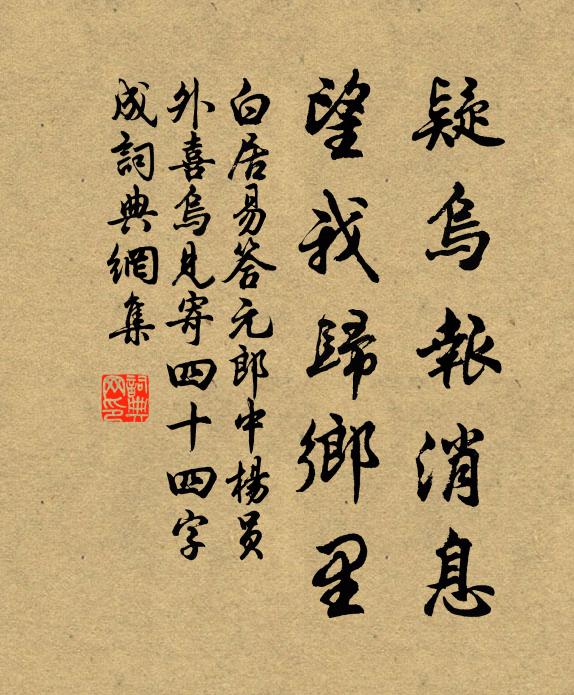 疑烏報消息
望我歸鄉里
白居易答元郎中楊员
外喜烏見寄四十四字
成詞典網集
詞典
网印